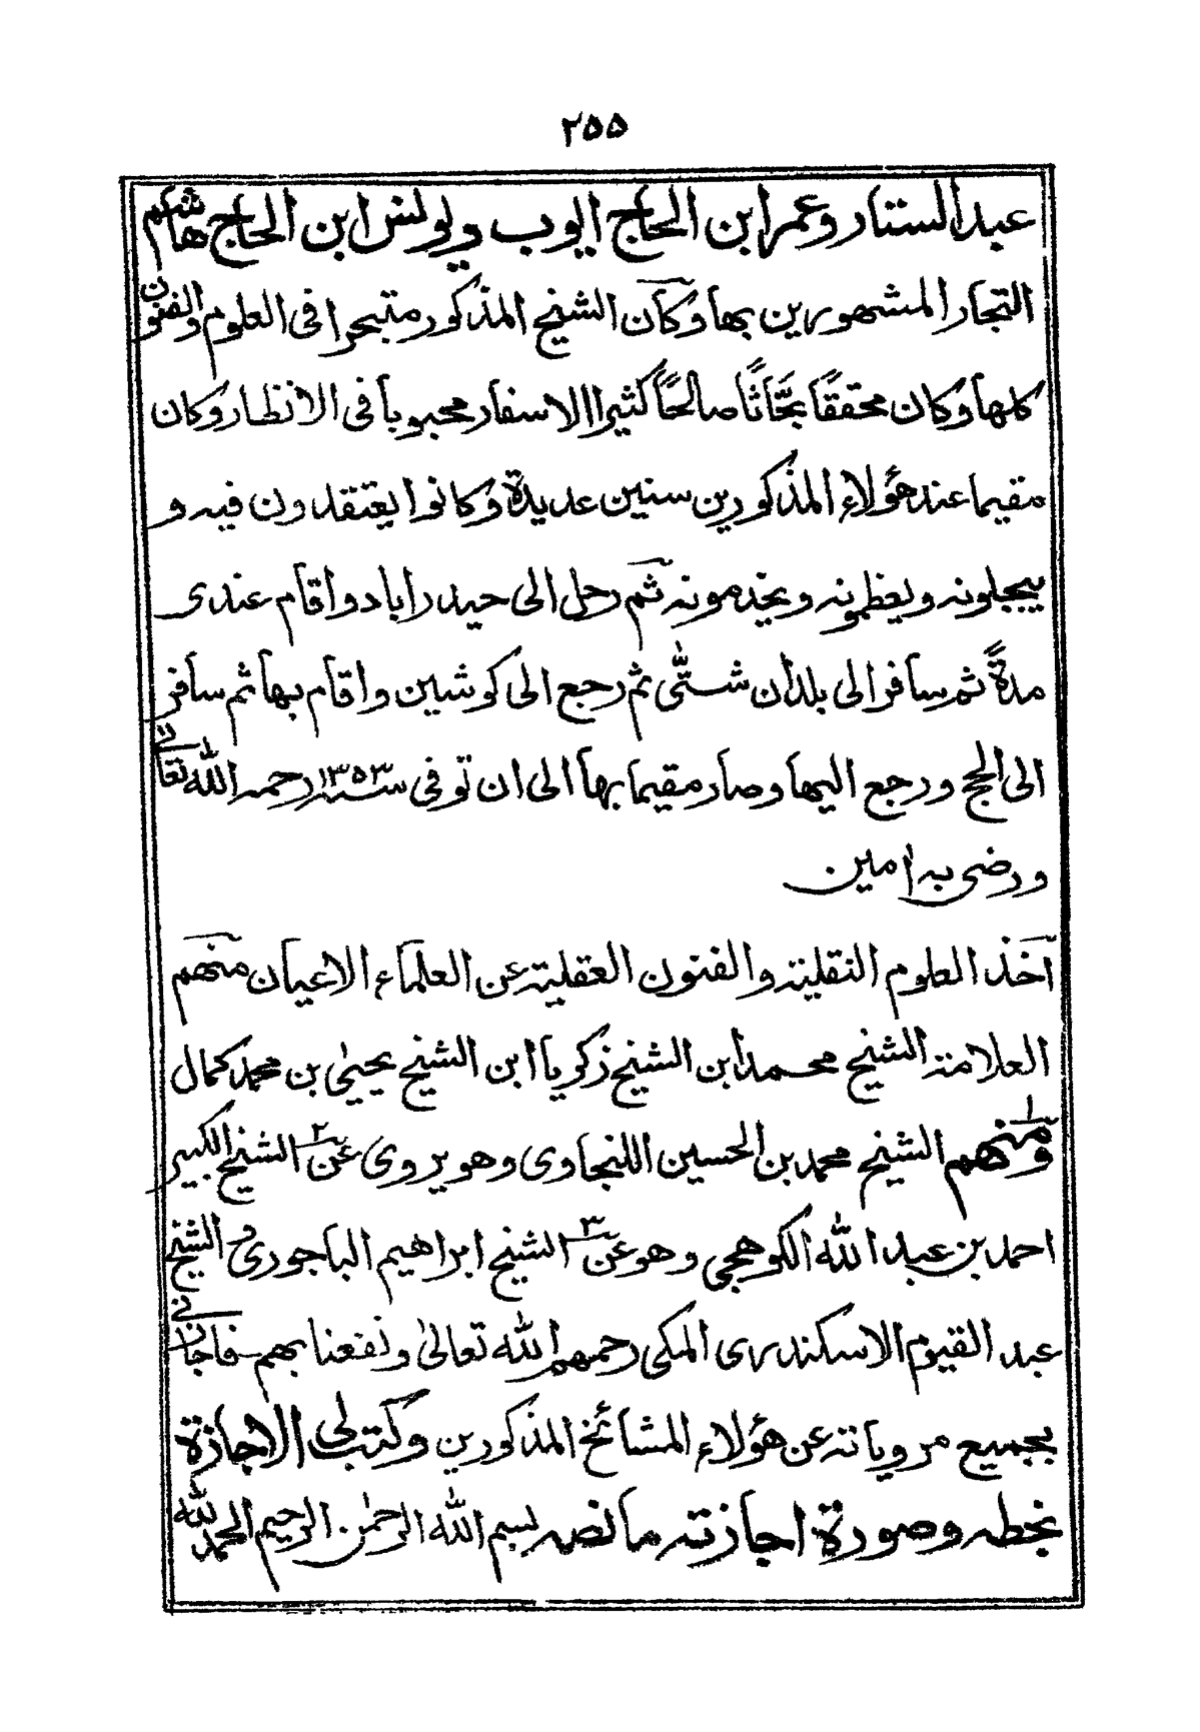 ٢٥٥
عبد الستار وعمر ابن الحاج ايوب ويونس ابن الحاج هاشم
التجار المشهورين بها وكان الشيخ المذكور متبحرا فى العلوم والفنون
كلها وكان محققًا بحّاثًا صالحًا كثيرا الاسفار محبوبا فى الانظار وكان
مقيما عند هؤلاء المذكورين سنين عديدة وكانوا يعتقدون فيه و
يبجلونه ويعظمونه ويخدمونه ثم رحل الى حيدراباد واقام عندى
مدةً ثم سافر الى بلدان شتّٰى ثم رجع الى كوشين واقام بها ثم سافر
الى الحج ورجع اليها وصار مقيما بها الى ان توفى سنة ١٣٥٣ رحمه الله تعالى
ورضى به اٰمين
اخذ العلوم النقلية والفنون العقلية عن العلماء الاعيان منهم
العلامة الشيخ محمد ابن الشيخ زكريا ابن الشيخ يحيىٰ بن محمد كمال
ومنهم ١ الشيخ محمد بن الحسين اللنجاوى وهو يروى عن ٢ الشيخ الكبير
احمد بن عبد الله الكوهجى وهو عن ٣ الشيخ ابراهيم الباجورى و الشيخ
عبد القيوم الاسكندرى المكى رحمهم الله تعالىٰ ونفعنا بهم فاجازنى
بجميع مروياته عن هؤلاء المشائخ المذكورين وكتب لى الاجازة
بخطه وصورة اجازته ما نصه بسم الله الرحمٰن الرحيم الحمد لله